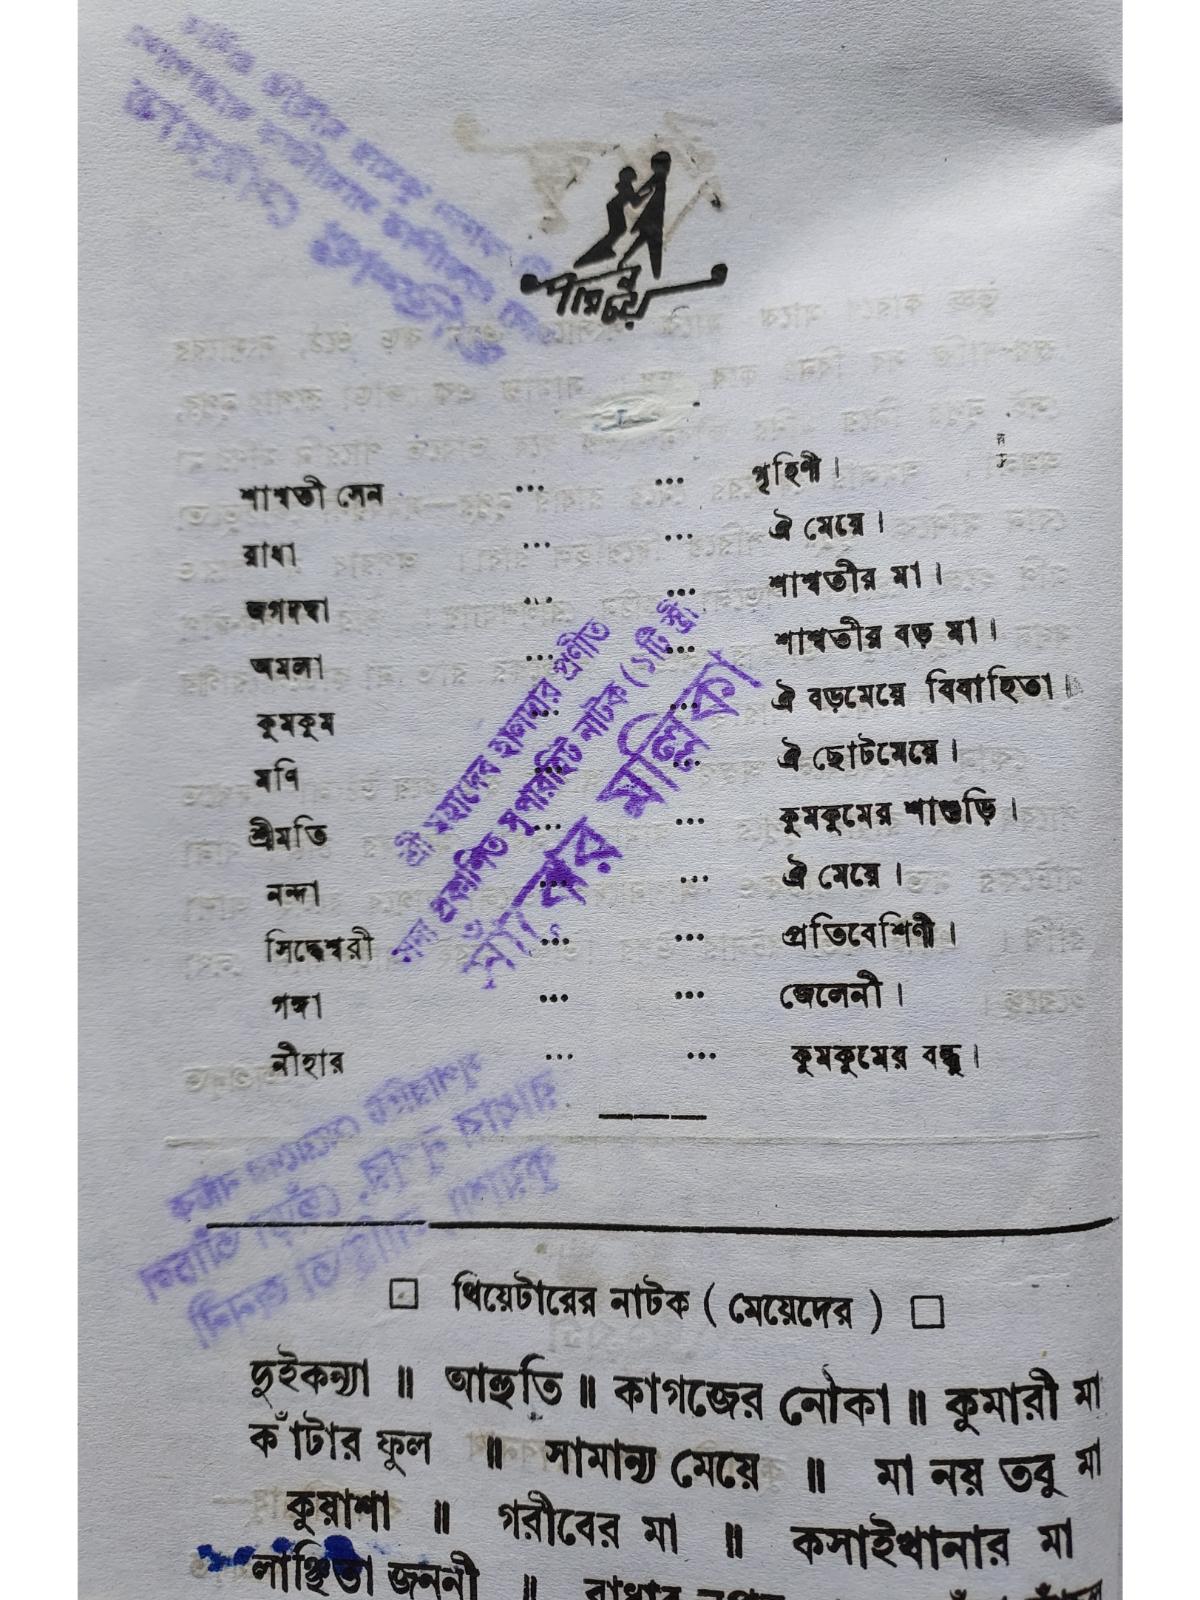 পরিচয়
শাশ্বতী সেন ... ... গৃহিণী।
রাধা ... ... ঐ মেয়ে।
জগদম্বা ... ... শাশ্বতীর মা।
অমলা ... ... শাশ্বতীর বড় মা।
কুমকুম ... ... ঐ বড়মেয়ে বিবাহিতা।
মণি ... ... ঐ ছোটমেয়ে।
শ্রীমতি ... ... কুমকুমের শাশুড়ি।
নন্দা ... ... ঐ মেয়ে।
সিদ্ধেশ্বরী ... ... প্রতিবেশিণী।
গঙ্গা ... ... জেলেনী।
নীহার ... ... কুমকুমের বন্ধু।
শ্রী মহাদেব হালদার প্রণীত
সদ্য প্রকাশিত সুপারহিট নাটক (১টি স্ত্রী
সাঁঝের মল্লিকা
□ থিয়েটারের নাটক ( মেয়েদের ) □
দুইকন্যা ॥ আহুতি ॥ কাগজের নৌকা ॥ কুমারী মা
কাঁটার ফুল ॥ সামান্য মেয়ে ॥ মা নয় তবু মা
কুয়াশা ॥ গরীবের মা ॥ কসাইখানার মা
লাঞ্ছিতা জননী ॥ রাধার